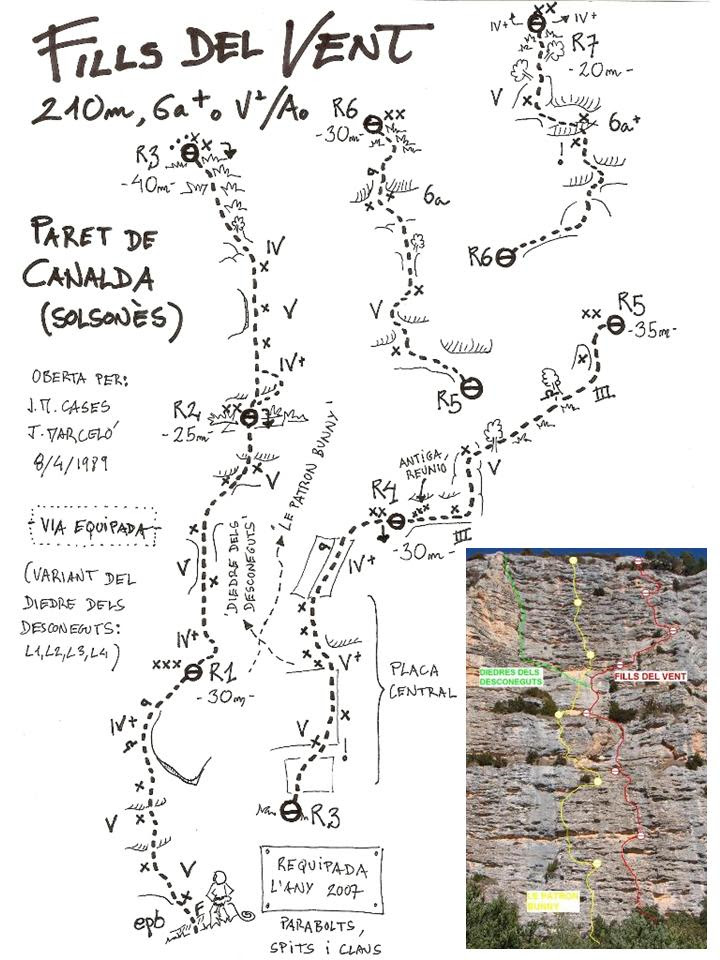 FILLS DEL VENT
210m, 6a+ o V²/A0
PARET DE
CANALDA
(SOLSONÈS)
OBERTA PER:
J.M. CASES
J. MARCELÓ
8/4/1989
VIA EQUIPADA
(VARIANT DEL
DIEDRE DELS
DESCONEGUTS:
L1, L2, L3, L4)
R3
-40m-
IV
V
IV+
R2
-25m-
V
V
IV+
R1
-30m-
IV+
V
V
epb
'DIEDRE DELS
DESCONEGUTS'
'LE PATRON BUNNY'
R6
-30m-
6a
V
R5
IV+
IV+
R7
-20m-
V
6a+
R6
R5
-35m-
III
V
ANTIGA
REUNIÓ
R4
-30m-
III
IV+
V+
V
R3
PLACA
CENTRAL
REQUIPADA
L'ANY 2007
PARABOLTS,
SPITS i CLAUS
DIEDRES DELS
DESCONEGUTS
FILLS DEL VENT
LE PATRON
BUNNY